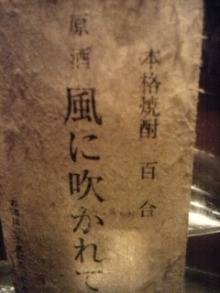 本格焼酎 百合
原酒
風に吹かれて